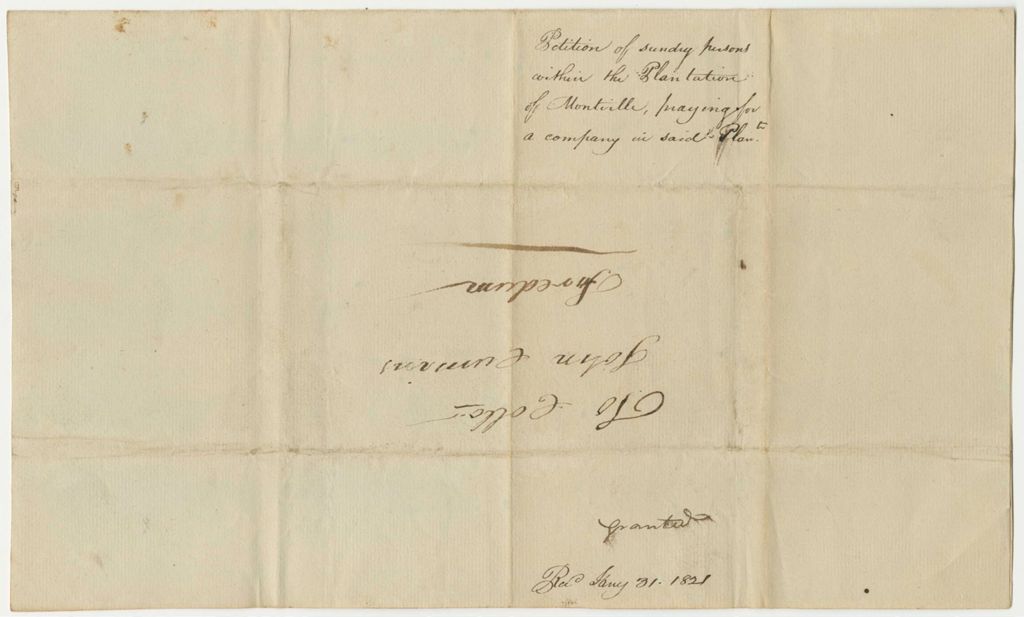 Petition of sundry persons
within the Plantation
of Montville, praying for
a company in said Plan.tn
To Collo
John Cummins
Freedum
granted
Recd Jany 31. 1821